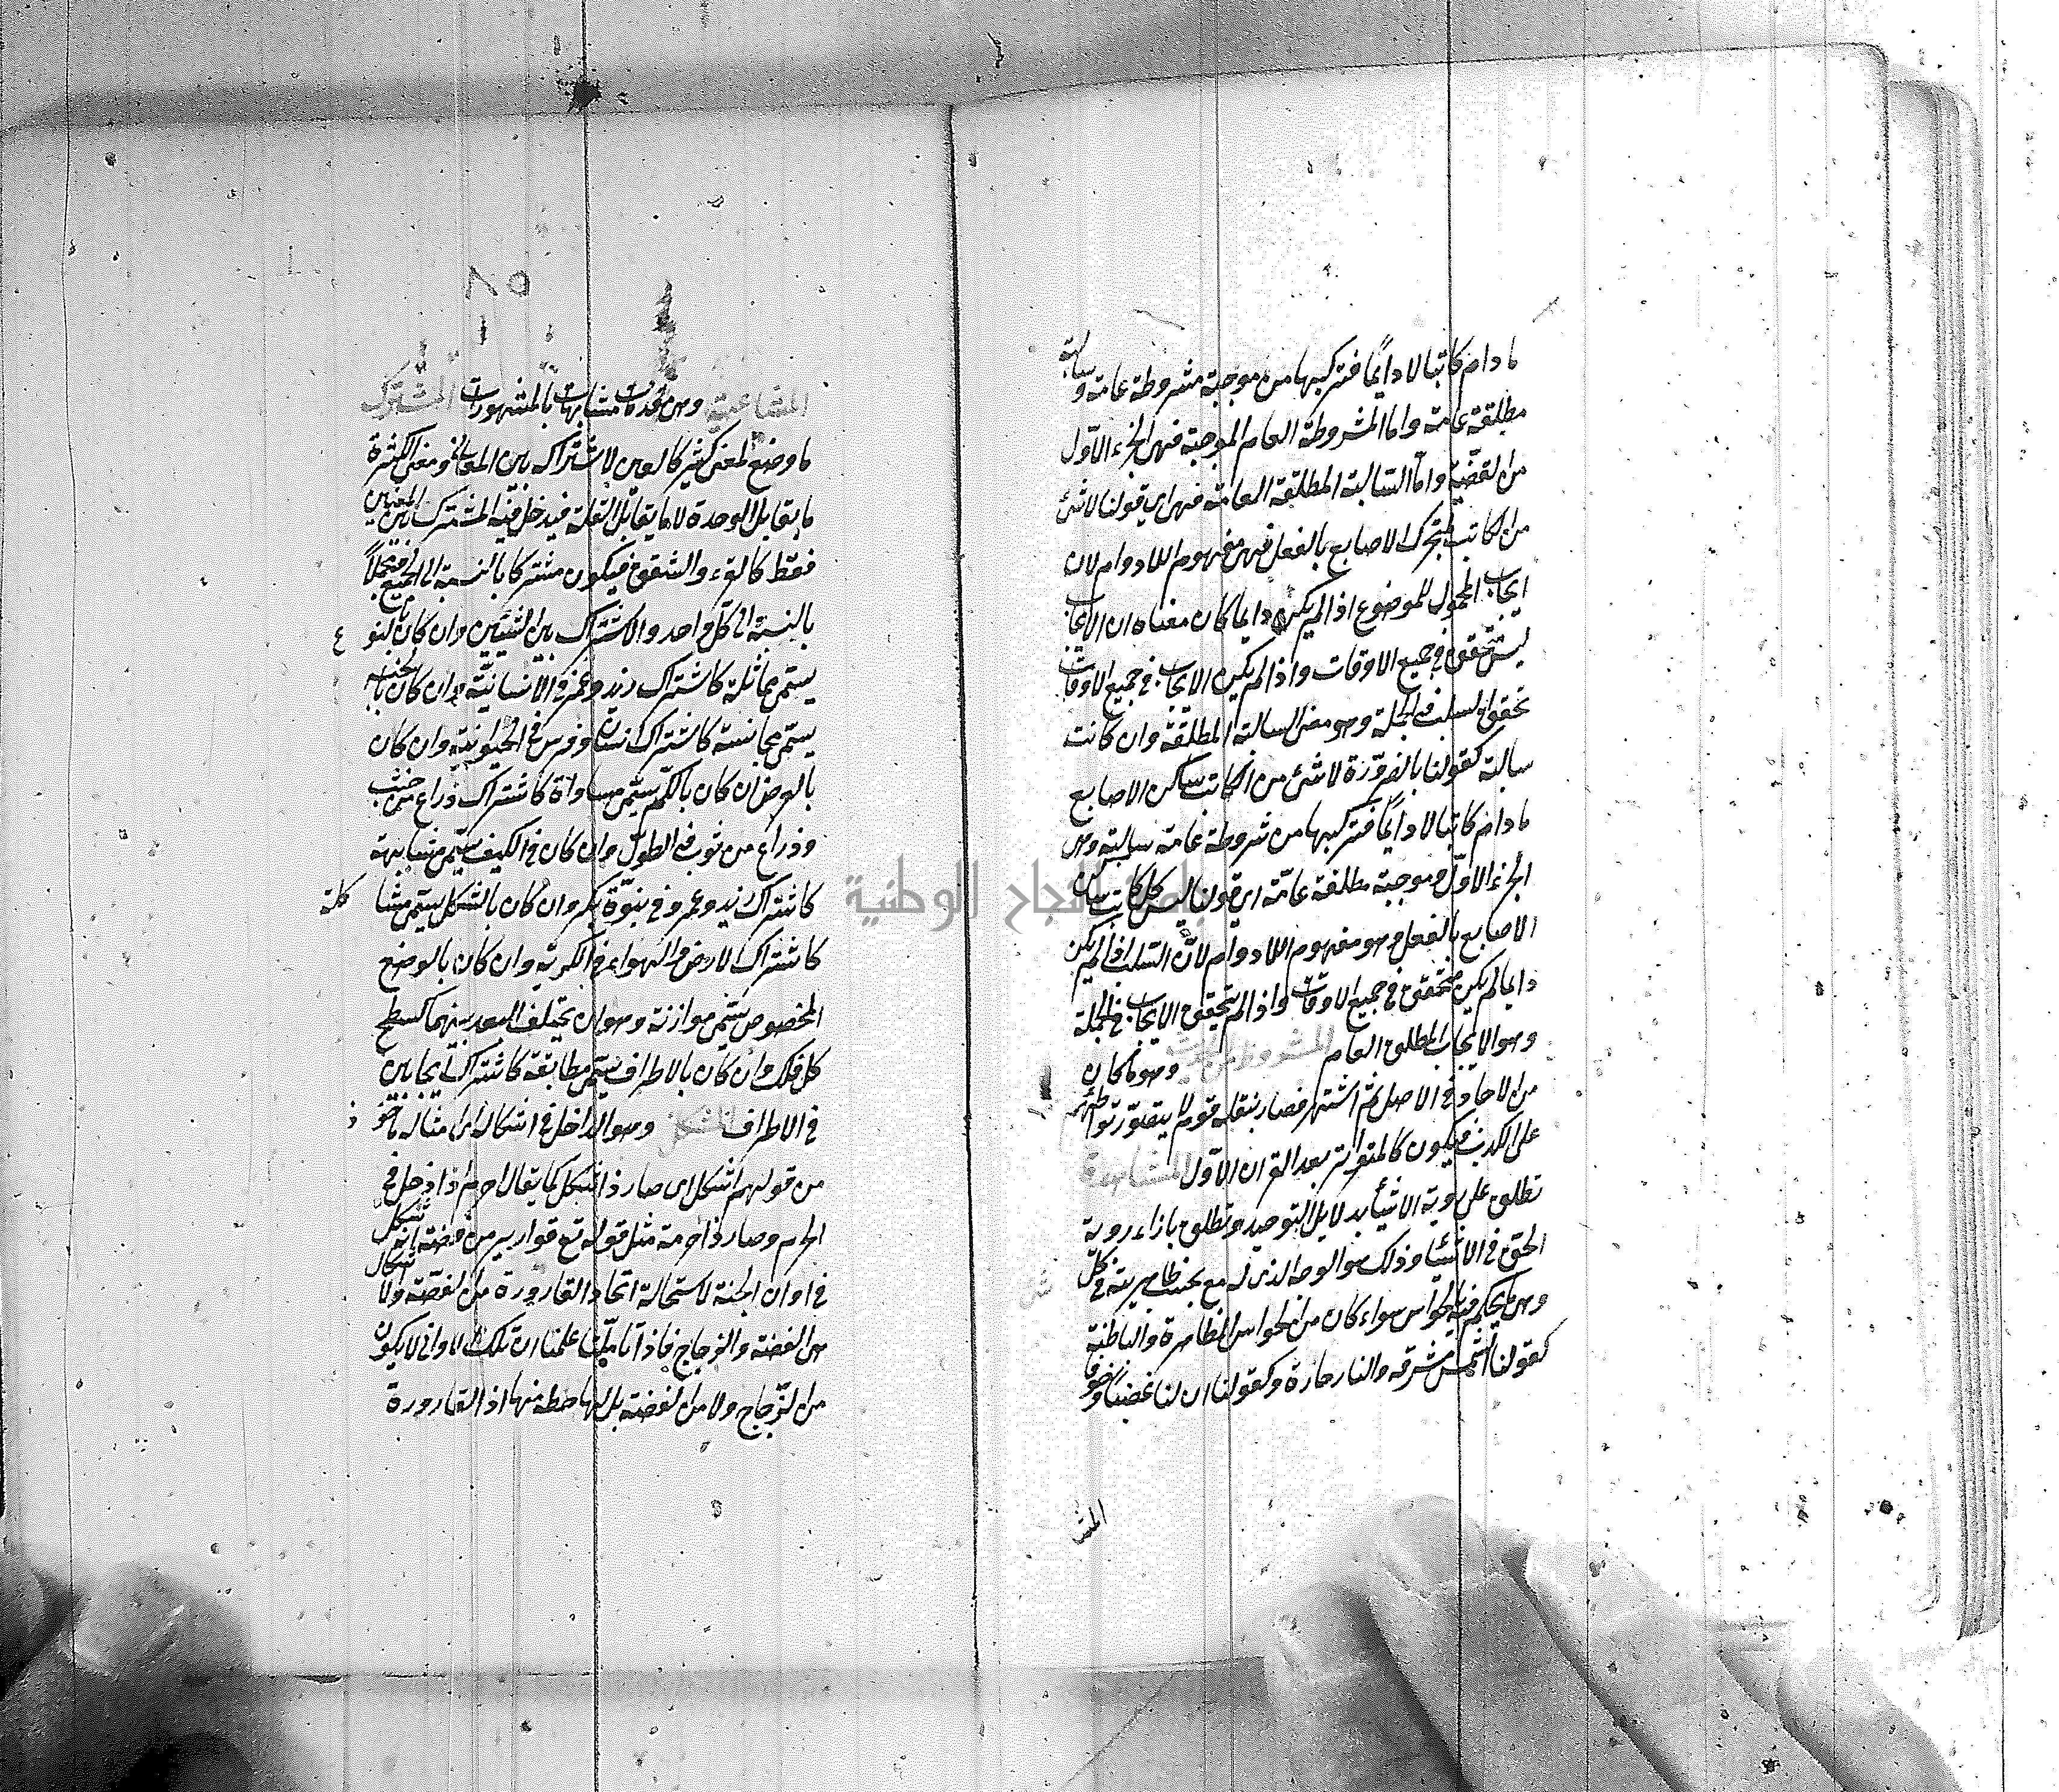 ما دام كاتبا لا دائمًا فتركيبها من موجبة مشروطة عامة وسالبة
مطلقة عامة واما المشروطة العامه الموجبة فهى الجزء الاوّل
من القضيّة وامّا السّالبة المطلقة العامّة فهى اى قولنا لا شئ
من الكاتب بمتحرك الاصابع بالفعل فهى مفهوم اللادوام لان
ايجاب المحمول للموضوع اذا لم يكن دايما كان معناه ان الايجاب
ليس متحقق فى جميع الاوقات واذا لم يكن الايجاب فى جميع الاوقات
تحقق السلب فى الجملة وهو معنى السالبة المطلقة وان كانت
سالبة كقولنا بالضرورة لا شئ من الكاتب ساكن الاصابع
ما دام كاتبا لا دائمًا فتركيبها من مشروطة عامة سالبة وهى
الجزء الاوّل وموجبة مطلقة عامّة اى قولنا ليس كل كاتب ساكن
الاصابع بالفعل وهو مفهوم اللادوام لانّ السّلب اذا لم يكن
دايما لم يكن متحقق فى جميع الاوقات واذا لم يتحقق الايجاب فى الجملة
وهو الايجاب المطلق العام المشهور من وهو ما كان
من الاحاد فى الاصل ثم اشتهر فصار ينقله قوم لا يتصوّر تواطئهم
على الكذب فيكون كالمتواتر بعد القرن الاوّل المشاهدة
تطلق على روية الاشياء بدلايل التوحيد وتطلق بازاء روية
الحق فى الاشياء وذلك هو الوجه الذى له مع بحسب ظاهريته فى كلّ
وهى ما يحكم فيه بالحواس سواء كان من الحواس الظاهرة والباطنة
كقولنا الشمس مشرقه والنار حارة وكقولنا ان لنا غضبًا وخوفا
المش
٨٥
المشاغبة وهى مقدمات متشابهات بالمشهورات المشترك
ما وضع لمعنى كثير كالعين لاشتراكه بين المعانى ومعنى الكثرة
ما يقابل الوحدة لا ما يقابل القلة فيدخل فيه المشترك بين المعنيين
فقط كالقرء والشفق فيكون مشتركا بالنسبة الى الجميع ومجملاً
بالنسبة الى كلّ واحد والاشتراك بين الشيئين وان كان بالنوع
يسمى مماثلة كاشتراك زيد وعمرو فى الانسانيّة وان كان بالجنس
يسمى مجانسة كاشتراك انسان وفرس فى الحيوانية وان كان
بالعرض ان كان بالكمّ يسمّى مساواة كاشتراك ذراع من خشب
وذراع من ثوب فى الطول وان كان فى الكيف يسمّى مشابهة
كاشتراك زيد وعمرو فى بنوّة بكر وان كان بالشكل يسمى مشاكلة
كاشتراك الارض والهواء فى الكرية وان كان بالوضع
المخصوص يسمى موازنة وهو ان يختلف البعد بينهما كسطح
كل فلك وان كان بالاطراف يسمى مطابقة كاشتراك
فى الاطراف المشكل وهو الداخل فى اشكاله اى امثاله ماخوذ
من قولهم اشكل اى صار ذا شكل كما يقال احرم اذا دخل فى
الحرم وصار ذا حرمة مثل قوله تع قوارير من فضة انه اشكل
فى اوان الجنة لاستحالة اتحاد القارورة من الفضّة ولا شكال
هى الفضة والزجاج فاذا تاملنا علمنا ان تلك الاوانى لا يكون
من الزّجاج ولا من الفضة بل لها حظ منها اذ القارورة